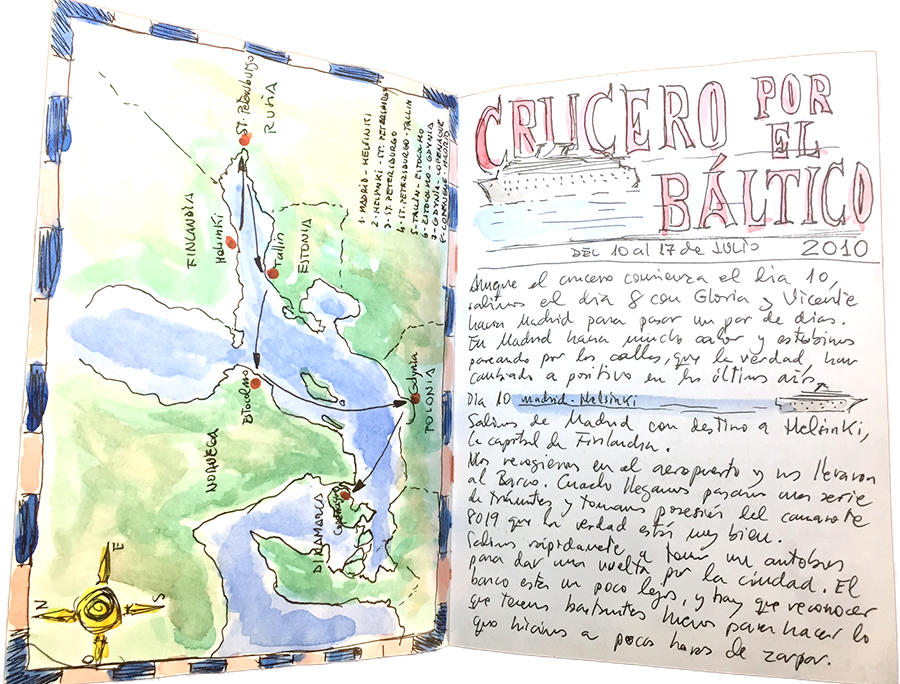 St. Petersburgo
RUSIA
FINLANDIA
Helsinki
Tallin
ESTONIA
Estocolmo
Gdynia
POLONIA
NORUEGA
DINAMARCA
Copenhague
N
E
S
O
1- MADRID - HELSINKI
2- HELSINKI - ST. PETERSBURGO
3- ST. PETERSBURGO
4- ST. PETERSBURGO - TALLIN
5- TALLIN - ESTOCOLMO
6- ESTOCOLMO - GDYNIA
7- GDYNIA - COPENHAGUE
8- COPENHAGUE - MADRID
CRUCERO POR
EL
BÁLTICO
DEL 10 al 17 de JULIO 2010
Aunque el crucero comienza el día 10,
salimos el día 8 con Gloria y Vicente
hacia Madrid para pasar un par de días.
En Madrid hacía mucho calor y estubimos
paseando por las calles, que la verdad, han
cambiado a positivo en los últimos años.
Dia 10 Madrid - Helsinki
Salimos de Madrid con destino a Helsinki,
la capital de Finlandia.
Nos recogieron en el aeropuerto y nos llevaron
al Barco. Cuando llegamos pasamos una serie
de trámites y tomamos posesión del camarote
8019 que la verdad está muy bien.
Salimos rápidamente a tomar un autobus
para dar una vuelta por la ciudad. El
barco está un poco lejos, y hay que reconocer
que tenemos bastantes huevos para hacer lo
que hicimos a pocas horas de zarpar.